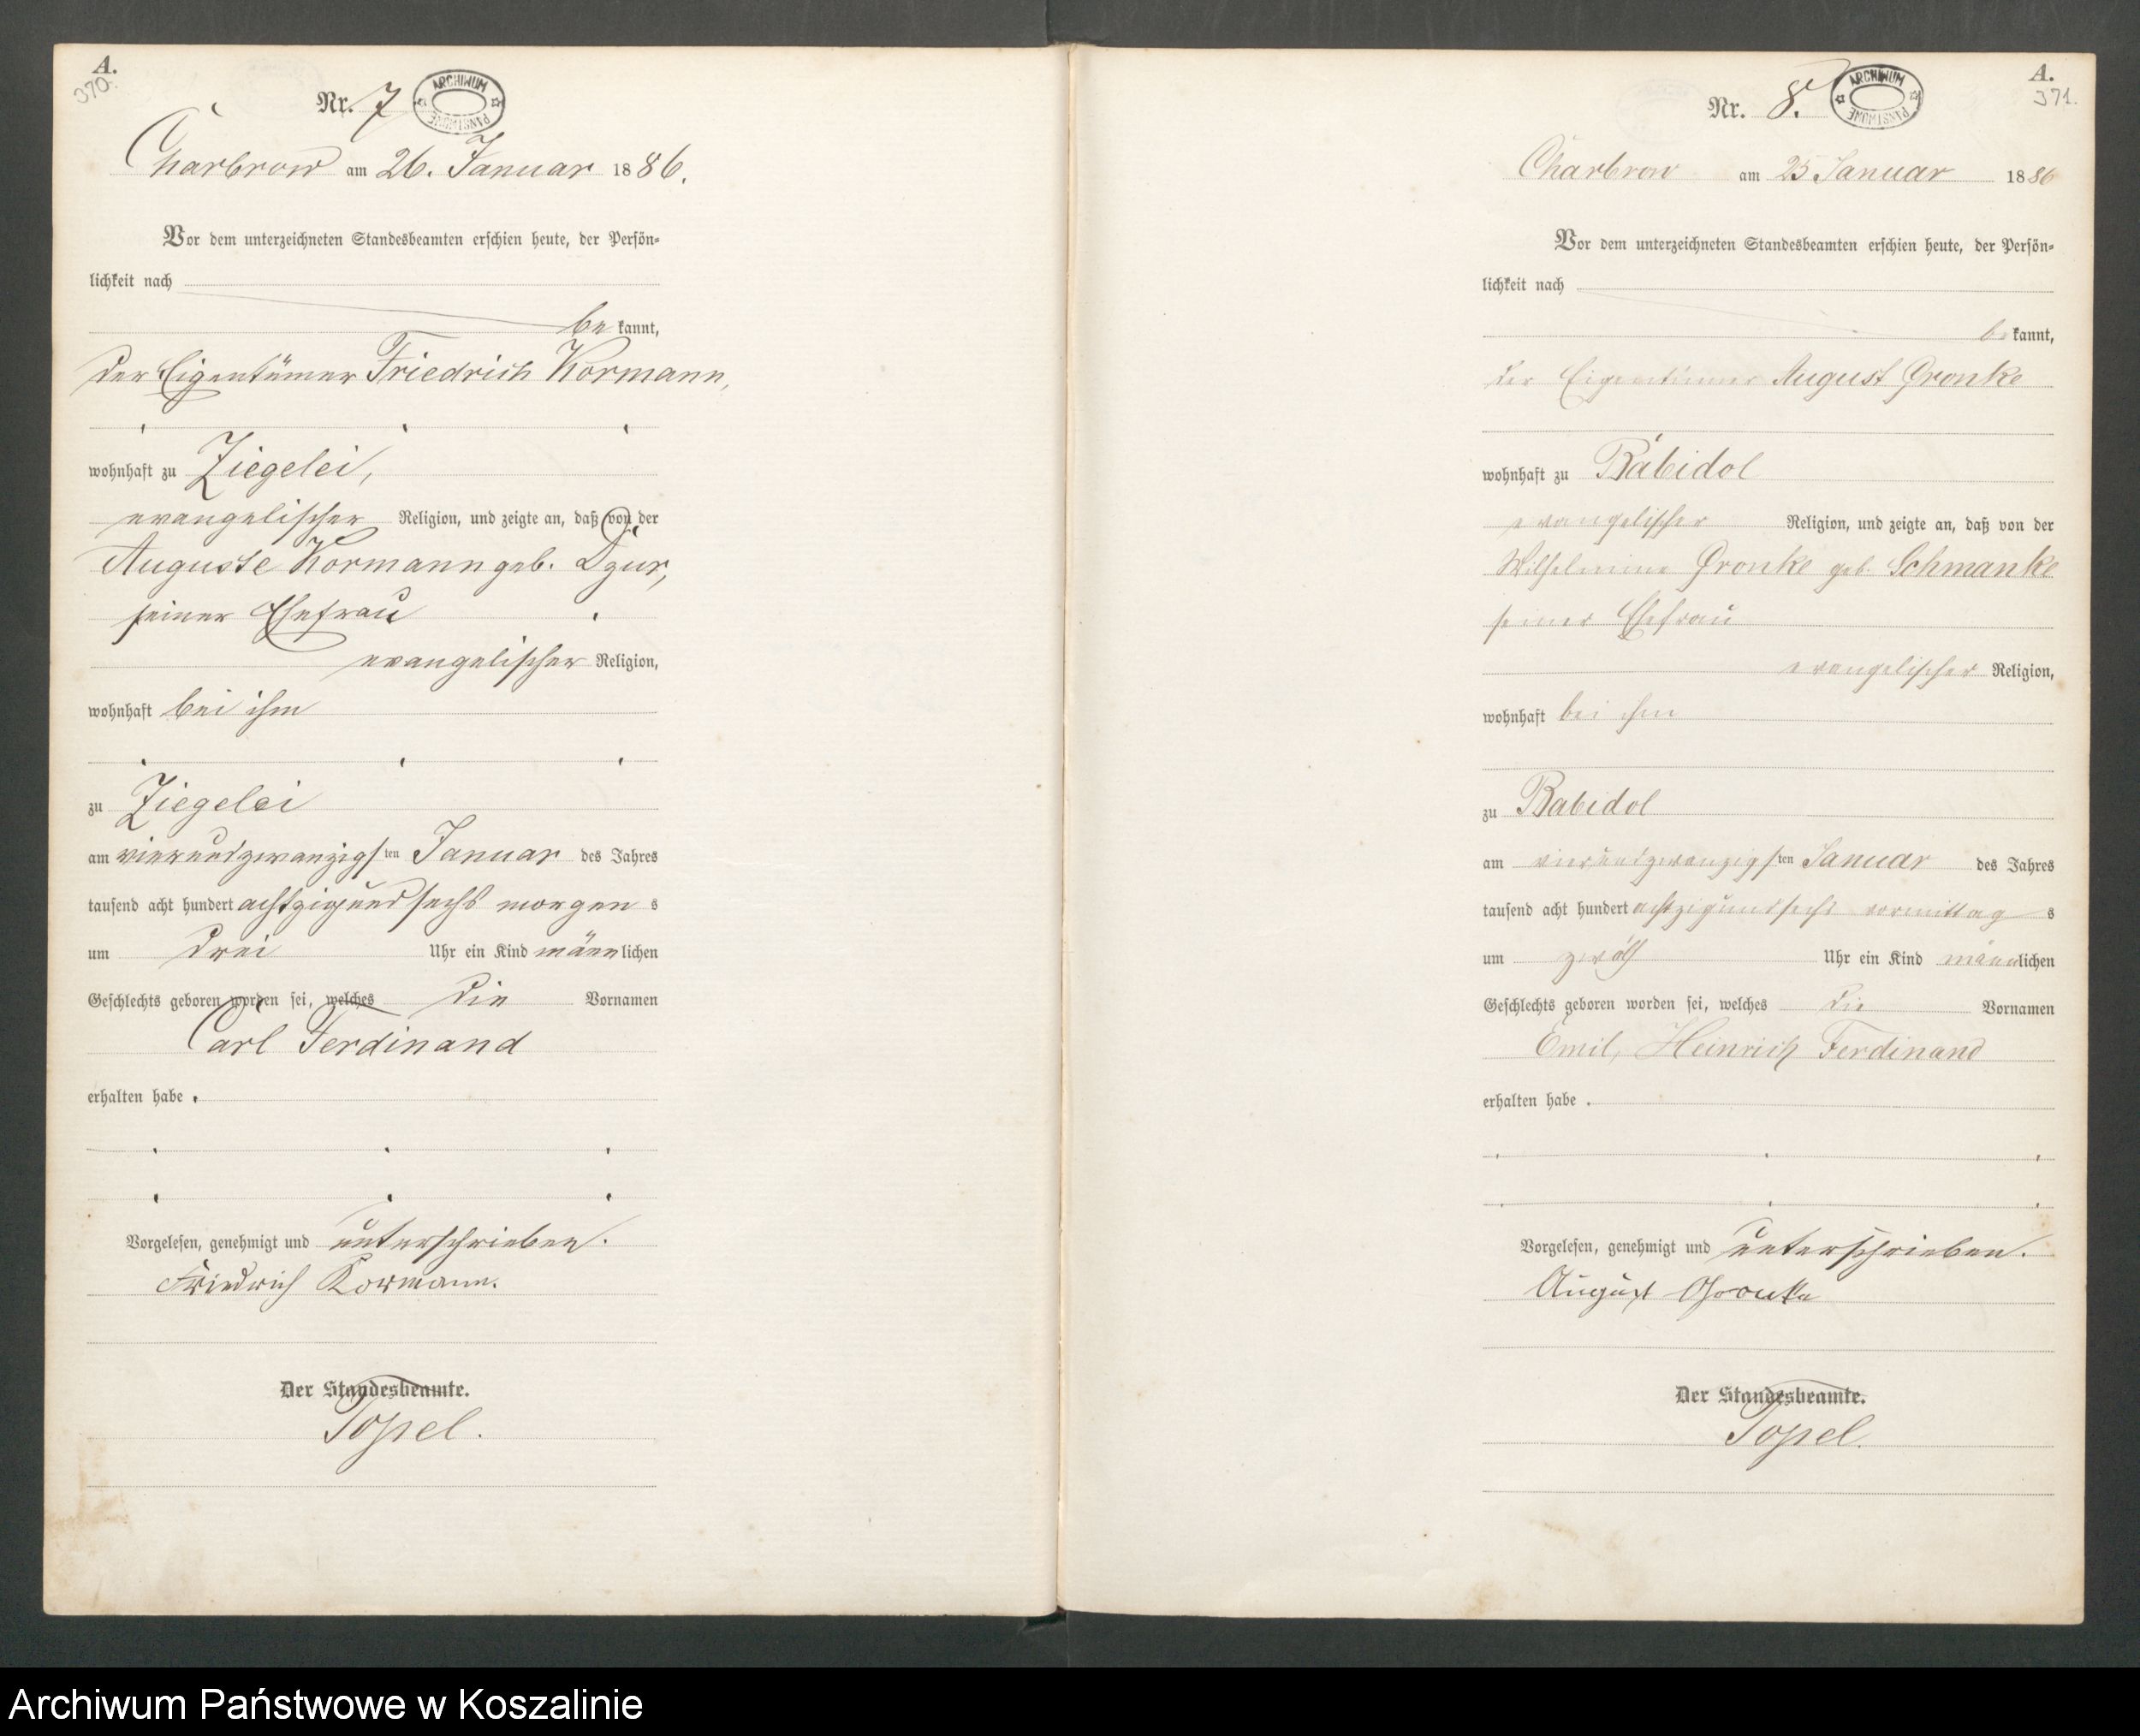 A.
370.
Nr. 7
ARCHIWUM PAŃSTWOWE
Charbrow am 26. Januar 1886.
Vor dem unterzeichneten Standesbeamten erschien heute, der Persön-
lichkeit nach
be kannt,
der Eigentümer Friedrich Kormann,
wohnhaft zu Ziegelei,
evangelischer Religion, und zeigte an, daß von der
Auguste Kormann geb. Dzur,
seiner Ehefrau
evangelischer Religion,
wohnhaft bei ihm
zu Ziegelei
am vierundzwanzigsten Januar des Jahres
tausend acht hundert achtzigundsechs morgens
um drei Uhr ein Kind männlichen
Geschlechts geboren worden sei, welches die Vornamen
Carl Ferdinand
erhalten habe.
Vorgelesen, genehmigt und unterschrieben.
Friedrich Kormann.
Der Standesbeamte.
Topel.
A.
371.
Nr. 8.
ARCHIWUM PAŃSTWOWE
Charbrow am 25 Januar 1886
Vor dem unterzeichneten Standesbeamten erschien heute, der Persön-
lichkeit nach
be kannt,
der Eigentümer August Gronke
wohnhaft zu Babidol
evangelischer Religion, und zeigte an, daß von der
Wilhelmine Gronke geb. Schmanke
seiner Ehefrau
evangelischer Religion,
wohnhaft bei ihm
zu Babidol
am vierundzwanzigsten Januar des Jahres
tausend acht hundert achtzigundsechs vormittags
um zwölf Uhr ein Kind männlichen
Geschlechts geboren worden sei, welches die Vornamen
Emil, Heinrich Ferdinand
erhalten habe.
Vorgelesen, genehmigt und unterschrieben.
August Gronke
Der Standesbeamte.
Topel.
Archiwum Państwowe w Koszalinie